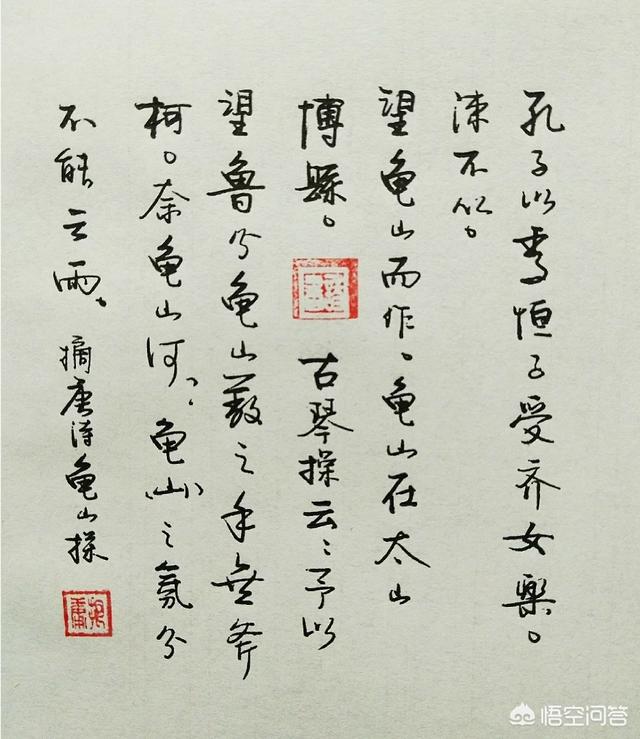 孔子以季恒子受齐女樂。
谏不从。
望龟山而作。龟山在太山
博縣。 古琴操云：予以
望魯兮龟山蔽之手無斧
柯。奈龟山何？龟(山)之氛兮
不能云雨。摘唐诗龟山操
悟空问答